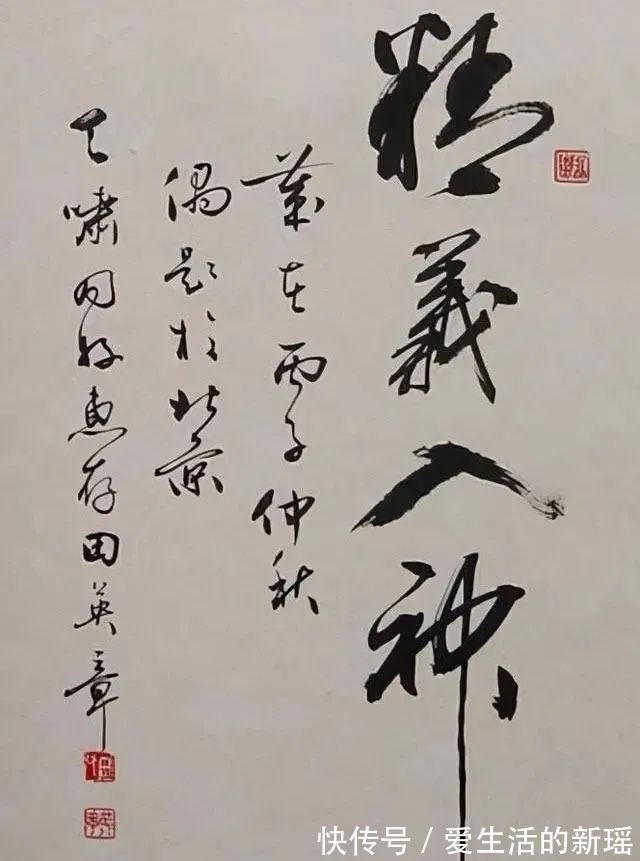 精義入神
歲在丙子仲秋
偶題於北京
天嘯同好惠存田英章
快传号/爱生活的新瑶